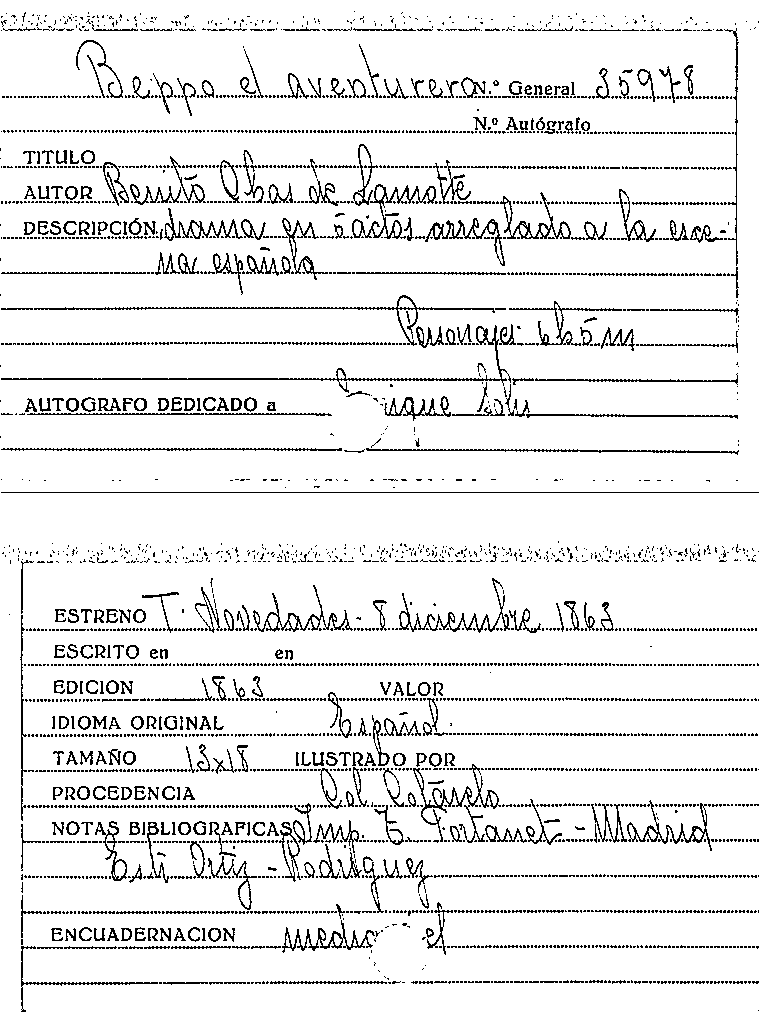 Beppo el aventurero N.º General 35978
N.º Autógrafo
TITULO
AUTOR Benito Obas de Lamotte
DESCRIPCIÓN drama en 5 actos arreglado a la esce-
na española
Personajes 6h 5m
AUTOGRAFO DEDICADO a Enrique Solis
ESTRENO T. Novedades - 8 diciembre 1863
ESCRITO en en
EDICION 1863 VALOR
IDIOMA ORIGINAL Español.
TAMAÑO 13x18 ILUSTRADO POR
PROCEDENCIA Col. Cotarelo
NOTAS BIBLIOGRAFICAS Imp. T. Fortanet - Madrid
Ortiz - Rodriguez
ENCUADERNACION media